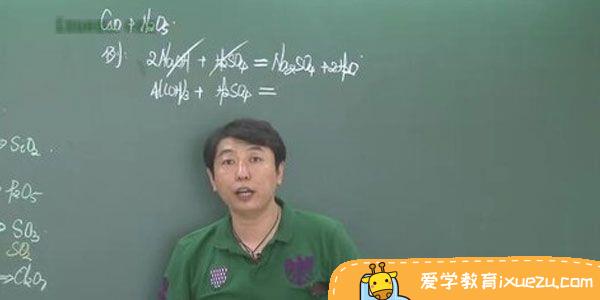 CaO + N₂O₅.
例: 2NaOH + H₂SO₄ = Na₂SO₄ + 2H₂O
Al(OH)₃ + H₂SO₄ =
⇒ SiO₂
⇒ P₂O₅
⇒ SO₃
SO₂
⇒ Cl₂O₇
爱学教育ixuezu.com